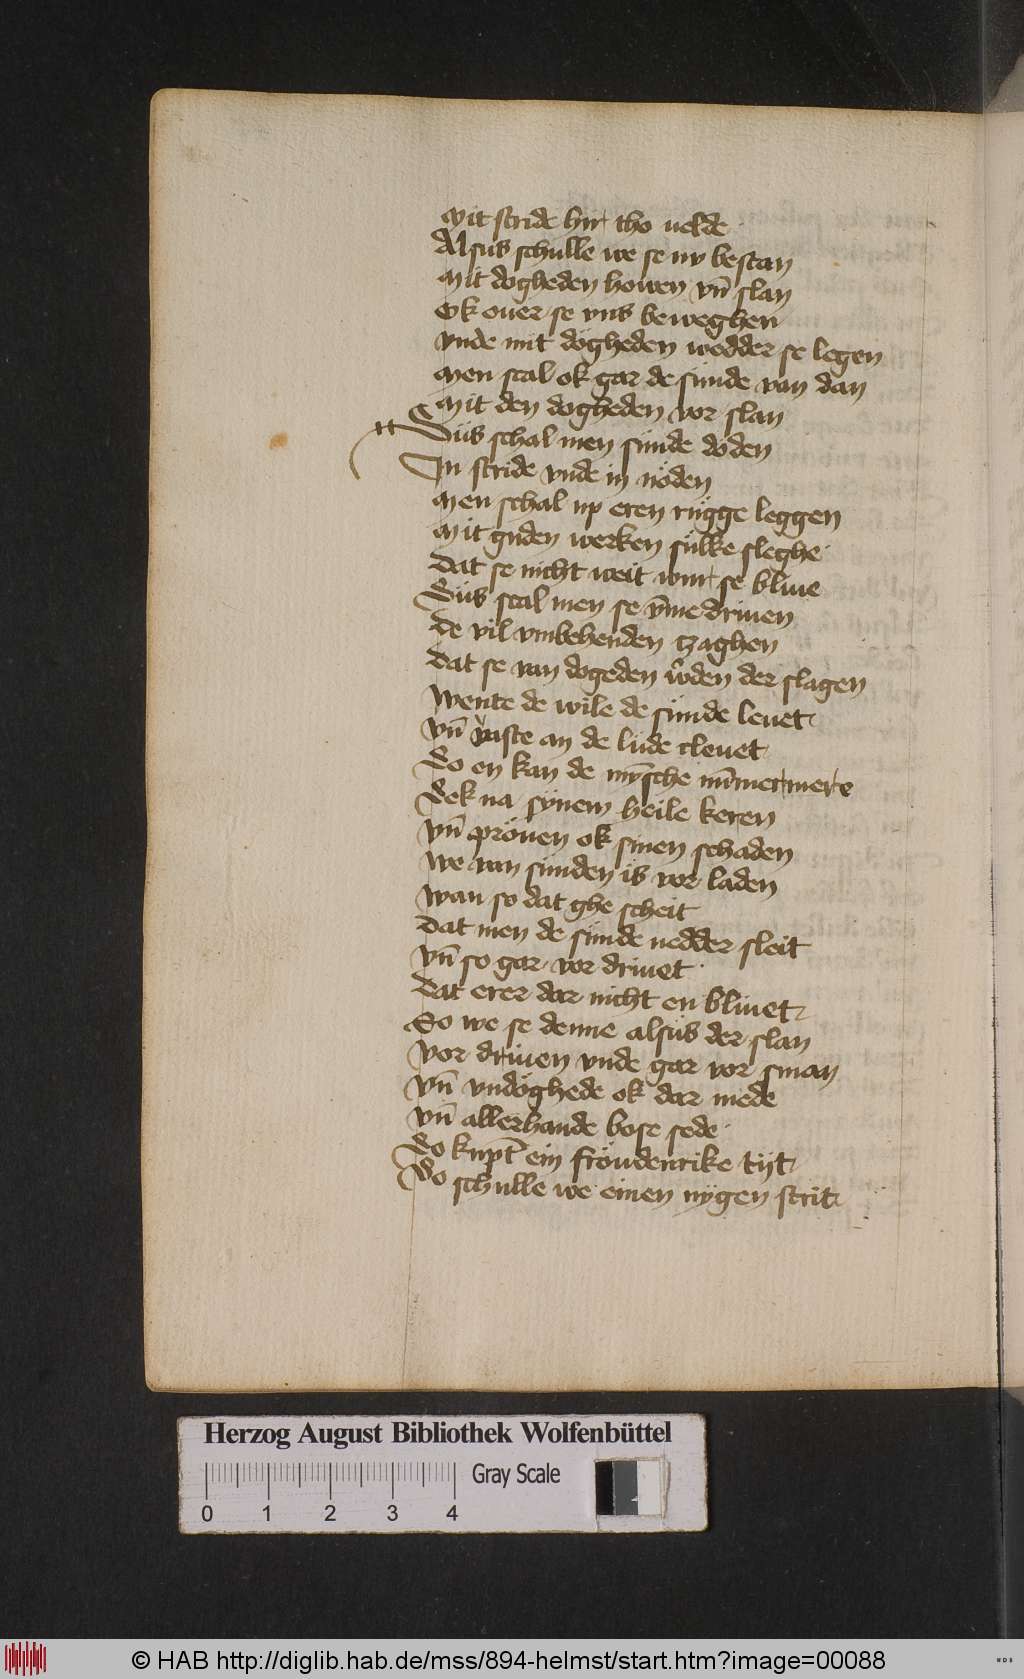 Mit stride hir tho uelde
Alsus schulle we se ny bestan
Mit dogheden howen vn̄ slan
Ok ouer se vns beweghen
vnde mit dögheden wedder se legen
Men scal ok gar de sunde van dan
Mit den dogheden vor slan
Düs schal men sunde döden
In stride vnde in nöden
Men schal up eren rügge leggen
Mit guden werken sulke sleghe
dat se nicht weit wur se bliue
Düs scal men se v̄me driuen
de vil vmbehenden tzaghen
dat se van dogeden w̑den der slagen
wente de wile de sunde leuet
vn̄ vaste an de lüde cleuet
So en kan de mȳsche nūmermere
Sek na synem heile keren
vn̄ pröuen ok sinen schaden
we van sunden is vor laden
wan so dat ghe scheit
dat men de sunde nedder sleit
vn̄ so gar vor driuet
dat erer dar nicht en bliuet
So we se denne alsus der slan
vor driuen vnde gar vor sman
vn̄ vndöghede ok dar mede
vn̄ allerhande bose sede
So kupt̄ ein fröudenrike tijt
So schulle we einen nygen strit
Herzog August Bibliothek Wolfenbüttel
Gray Scale
0 1 2 3 4
© HAB http://diglib.hab.de/mss/894-helmst/start.htm?image=00088